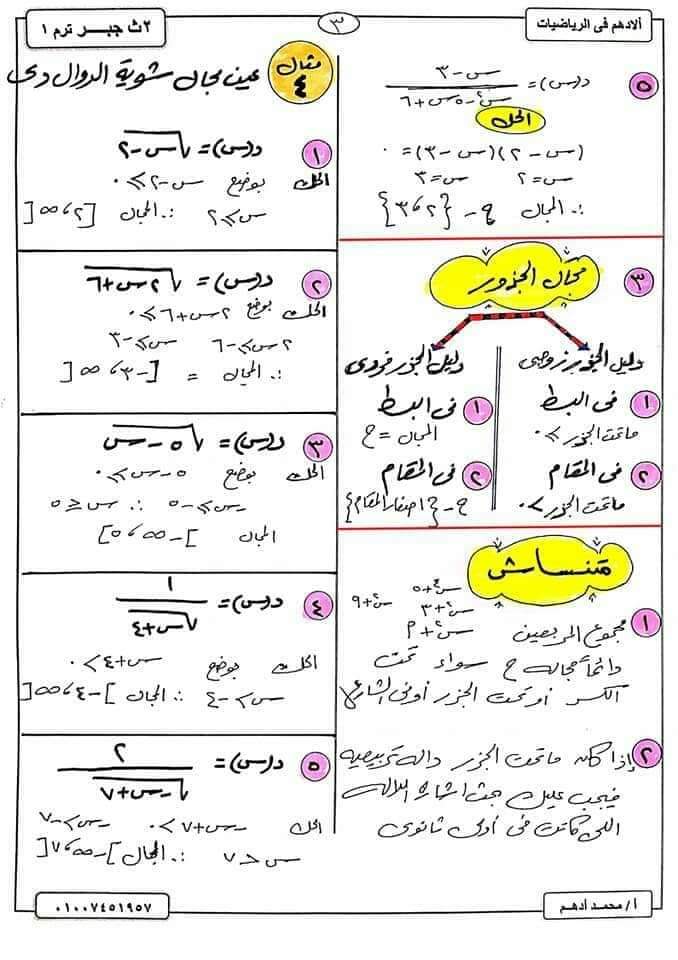 الادهم فى الرياضيات
٣
٢ث جبر ترم ١
٥ د(س) = (س - ٣) / (س² - ٥س + ٦)
الحل
(س - ٢)(س - ٣) = ٠
س = ٢ س = ٣
∴ المجال ح - {٢، ٣}
٣ مجال الجذور
دليل الجذر زوجى
١ فى البسط
ماتحت الجذر ≥ ٠
٢ فى المقام
ماتحت الجذر > ٠
دليل الجذر فردى
١ فى البسط
المجال = ح
٢ فى المقام
ح - {اصفار المقام}
متنساش
س² + ٣
س² + ٩
١ مجموع المربعين س² + م
دائماً مجاله ح سواء تحت
الكسر او تحت الجذر أو فى الشارع
٢ إذا كان ماتحت الجذر داله تربيعيه
فيجب عليك بحث اشاره الداله
اللى كانت فى أولى ثانوى
مثال ٤ عين مجال شوية الدوال دى
١ د(س) = √(س - ٢)
الحل بوضع س - ٢ ≥ ٠
س ≥ ٢ ∴ المجال [٢، ∞[
٢ د(س) = √(٢س + ٦)
الحل بوضع ٢س + ٦ ≥ ٠
٢س ≥ -٦ س ≥ -٣
∴ المجال = [-٣، ∞[
٣ د(س) = √(٥ - س)
الحل بوضع ٥ - س ≥ ٠
-س ≥ -٥ ∴ س ≤ ٥
المجال ]-∞، ٥]
٤ د(س) = ١ / √(س + ٤)
الحل بوضع س + ٤ > ٠
س > -٤ ∴ المجال ]-٤، ∞[
٥ د(س) = ٢ / √(-س + ٧)
الحل -س + ٧ > ٠ -س > -٧
س < ٧ ∴ المجال ]-∞، ٧[
أ/ محمد أدهم
٠١٠٠٧٤٥١٩٥٧